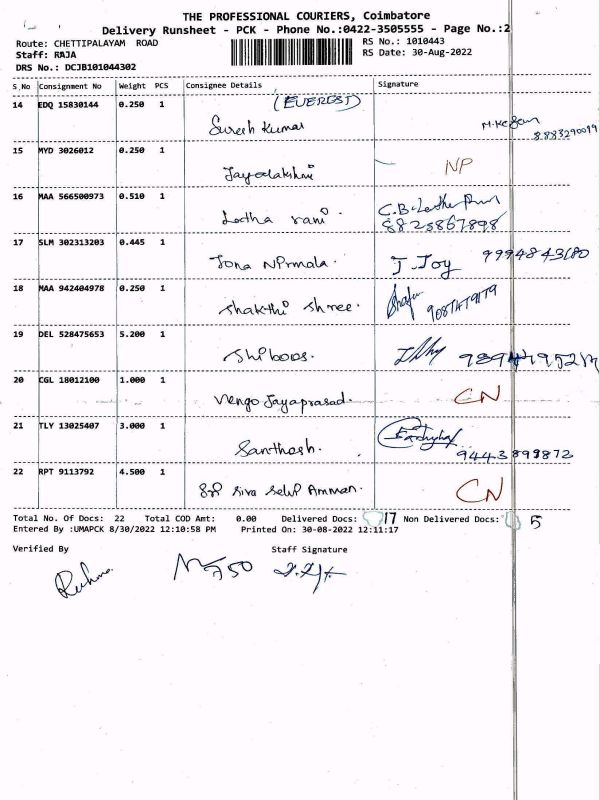 THE PROFESSIONAL COURIERS, Coimbatore
Delivery Runsheet - PCK - Phone No.:0422-3505555 - Page No.:2
Route: CHETTIPALAYAM ROAD RS No.: 1010443
Staff: RAJA RS Date: 30-Aug-2022
DRS No.: DCJB101044302
S_No Consignment No Weight PCS Consignee Details Signature
14 EDQ 15830144 0.250 1 (EVEREST)
Suresh Kumar
15 MYD 3026012 0.250 1
NP
16 MAA 566500973 0.510 1
Letha rani. 8825867898
17 SLM 302313203 0.445 1
J. Joy
18 MAA 942404978 0.250 1
Shakthi Shree.
19 DEL 528475653 5.200 1
20 CGL 18012100 1.000 1
Nengo Jayaprasad. CN
21 TLY 13025407 3.000 1
Santhosh. 9443899872
22 RPT 9113792 4.500 1
Sri Siva Selvi Amman. CN
Total No. Of Docs: 22 Total COD Amt: 0.00 Delivered Docs: 17 Non Delivered Docs: 5
Entered By :UMAPCK 8/30/2022 12:10:58 PM Printed On: 30-08-2022 12:11:17
Verified By Staff Signature